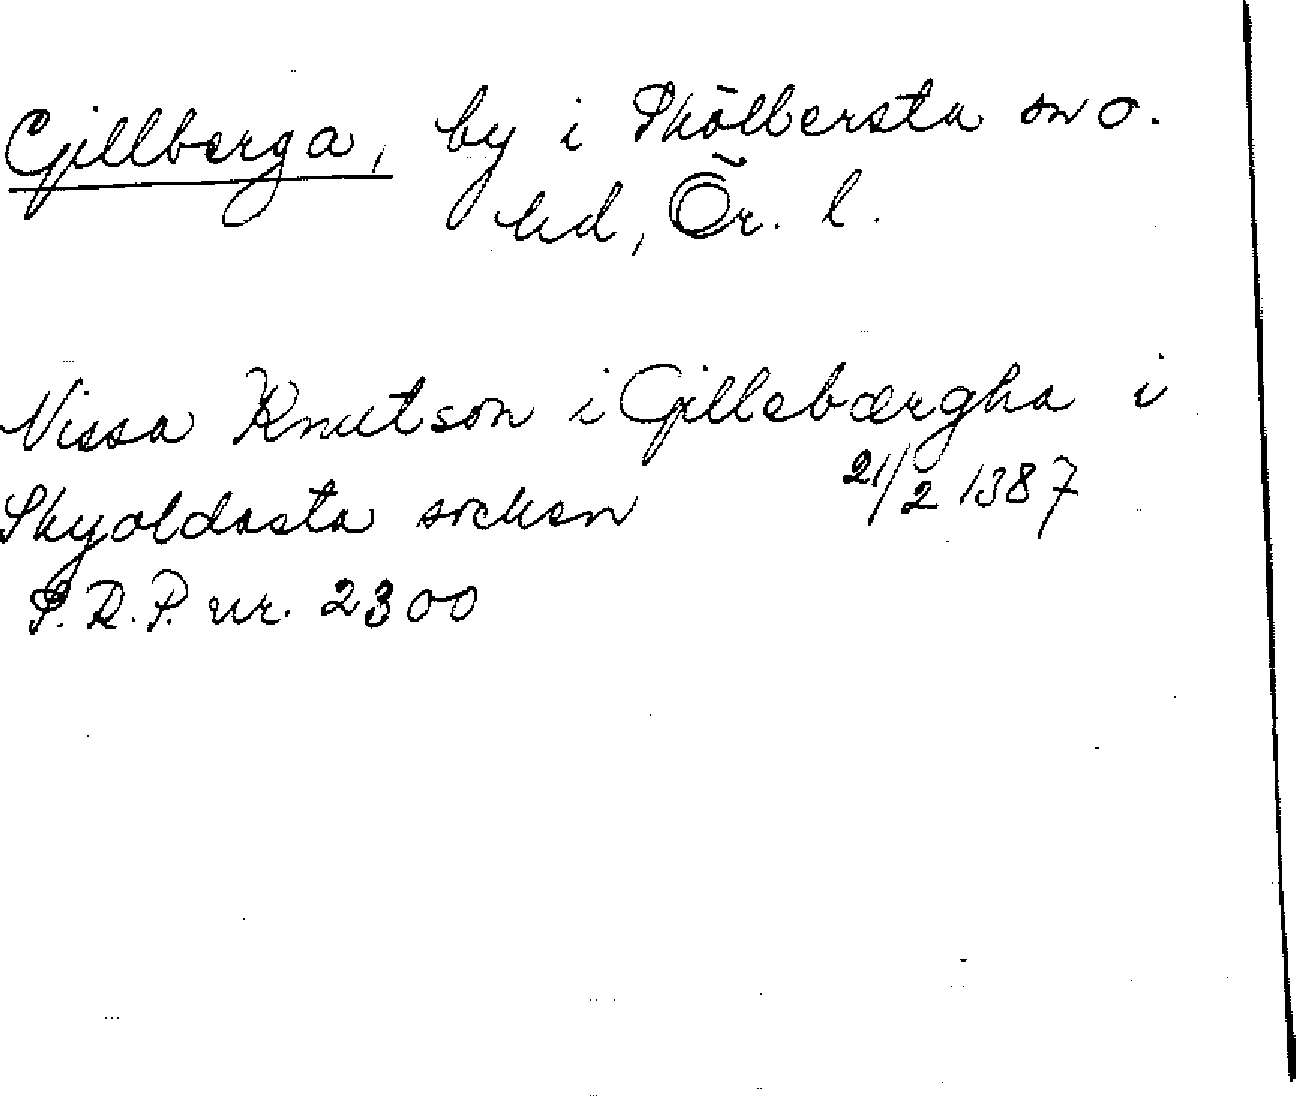 Gillberga, by i Sköllersta sn o.
hd, Ör. l.
Nissa Knutson i Gillebærgha i
Skyoldasta socken 21/2 1387
S.R.P. nr. 2300